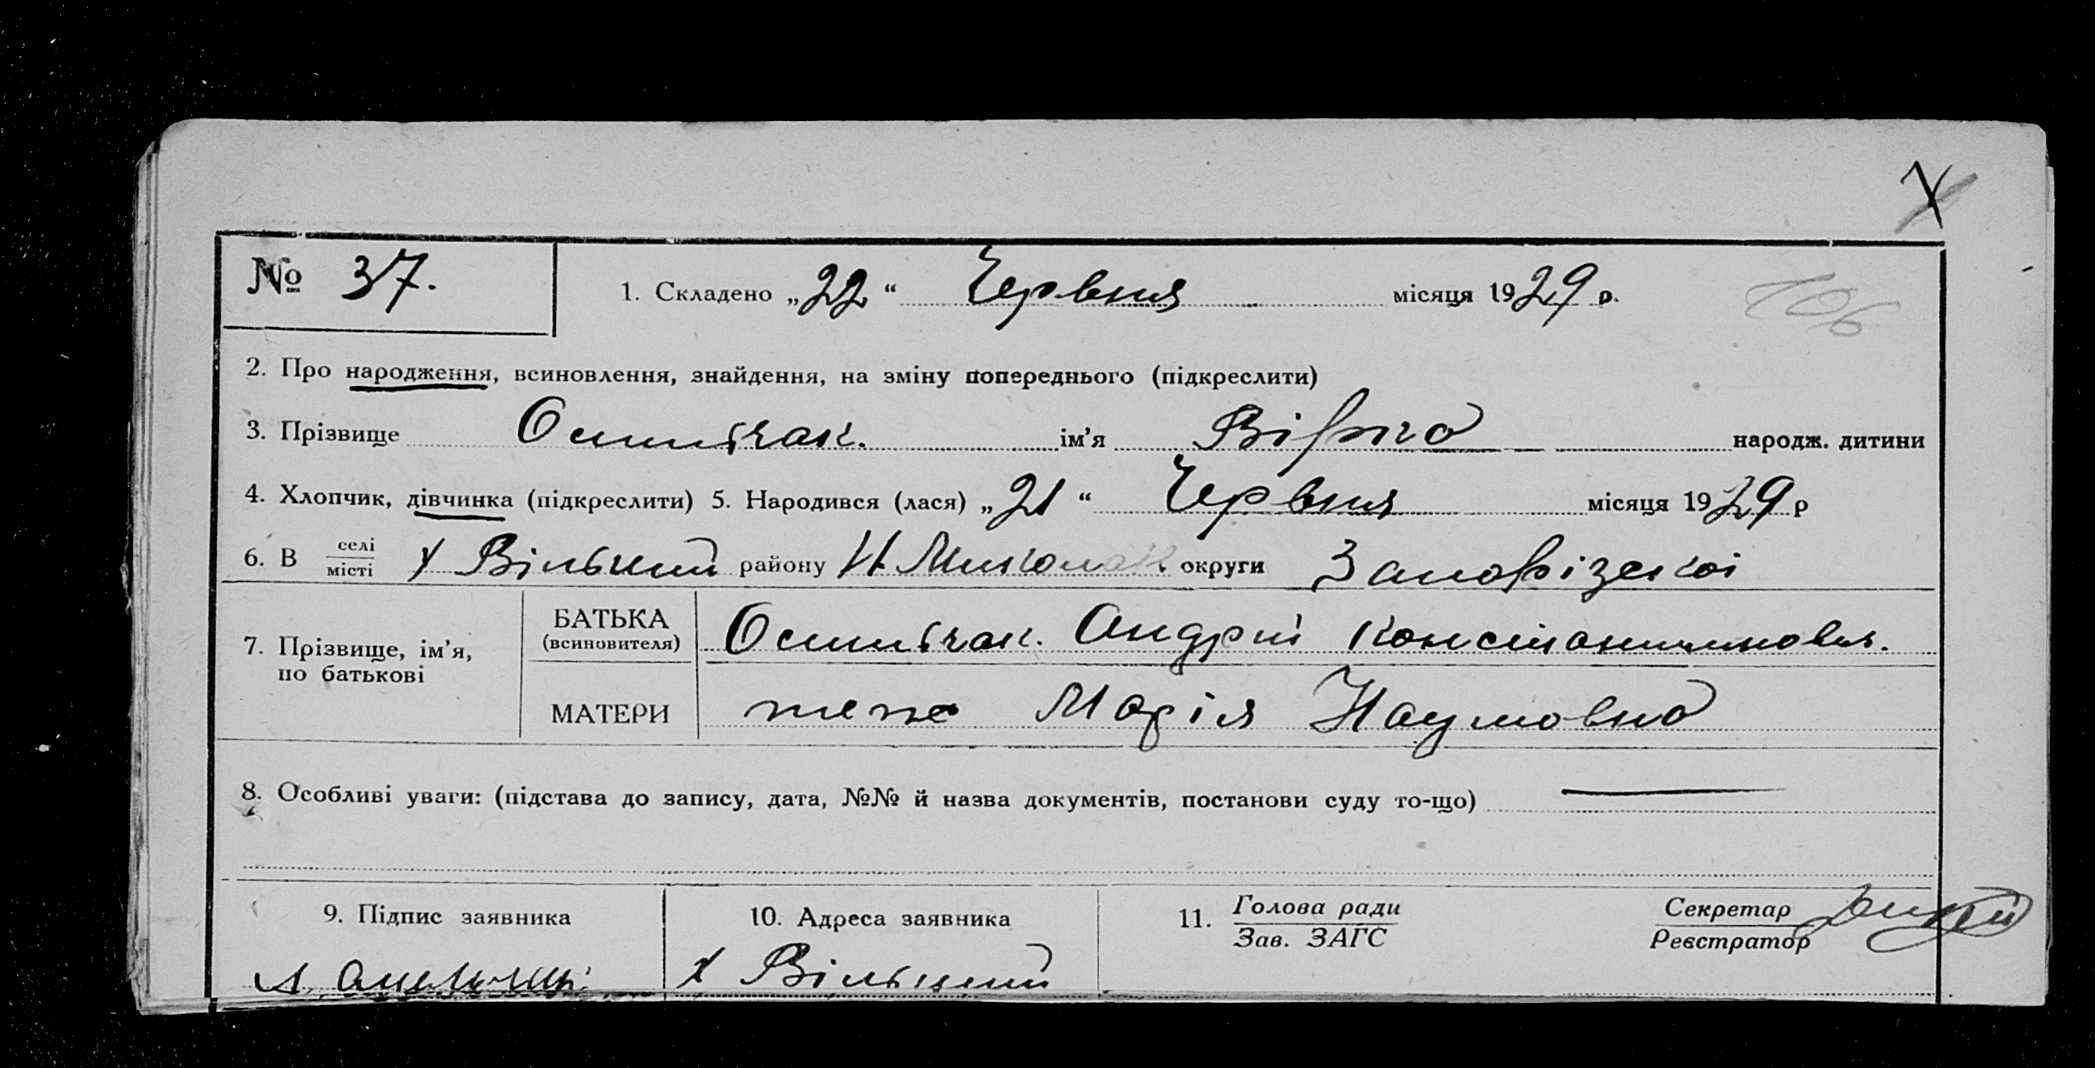 № 37.
1. Складено „22“ Червня місяця 1929 р.
106
2. Про народження, всиновлення, знайдення, на зміну попереднього (підкреслити)
3. Прізвище ім’я Віра народж. дитини
4. Хлопчик, дівчинка (підкреслити) 5. Народився (лася) „21“ Червня місяця 1929 р
6. В селі місті х Вільний району Н Микола округи Запорізської
7. Прізвище, ім’я, по батькові
БАТЬКА (всиновителя) Андрій Константинович.
МАТЕРИ Марія Наумовна
8. Особливі уваги: (підстава до запису, дата, №№ й назва документів, постанови суду то-що)
9. Підпис заявника
10. Адреса заявника
х Вільний
11. Голова ради
Зав. ЗАГС
Секретар
Реєстратор